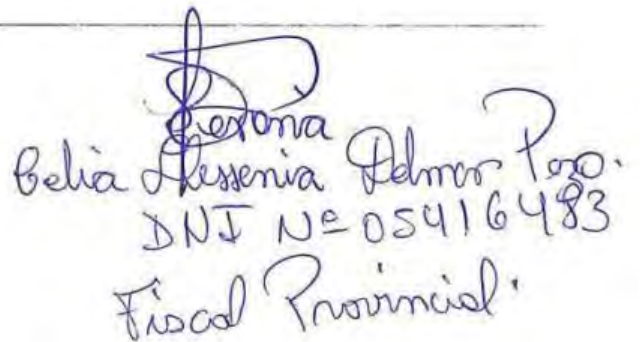 Celia Jessenia Delmar Pezo.
DNI Nº 05416483
Fiscal Provincial.